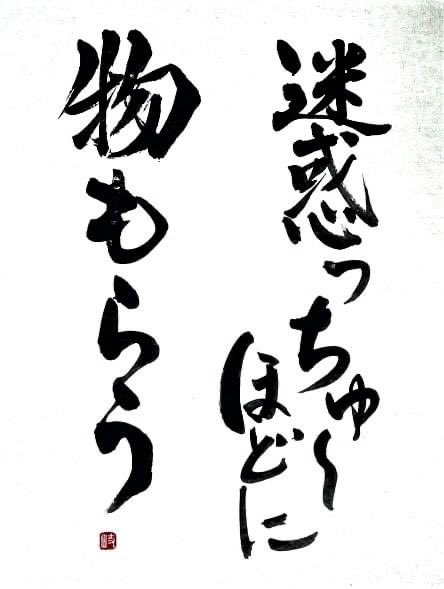 迷惑っちゅ〜
ほどに
物もらう